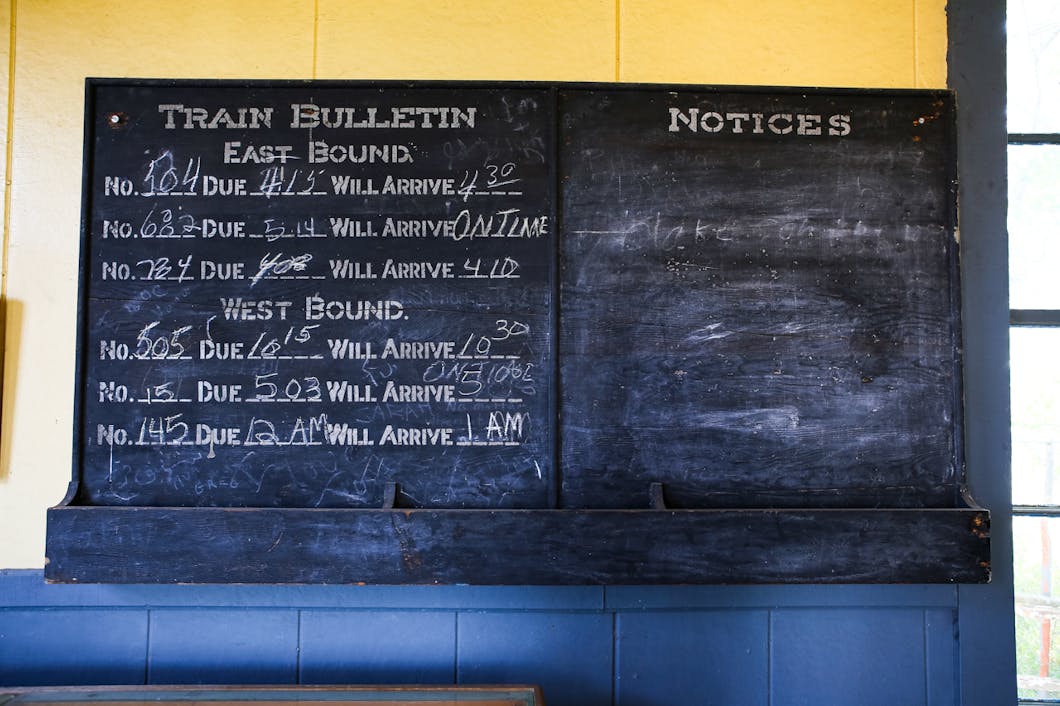 TRAIN BULLETIN
EAST BOUND.
No. 504 DUE 415 WILL ARRIVE 430
No. 682 DUE 514 WILL ARRIVE ONTIME
No. 784 DUE 408 WILL ARRIVE 410
WEST BOUND.
No. 505 DUE 1015 WILL ARRIVE 1030
No. 151 DUE 503 WILL ARRIVE 5
No. 145 DUE 12 AM WILL ARRIVE 1 AM
NOTICES